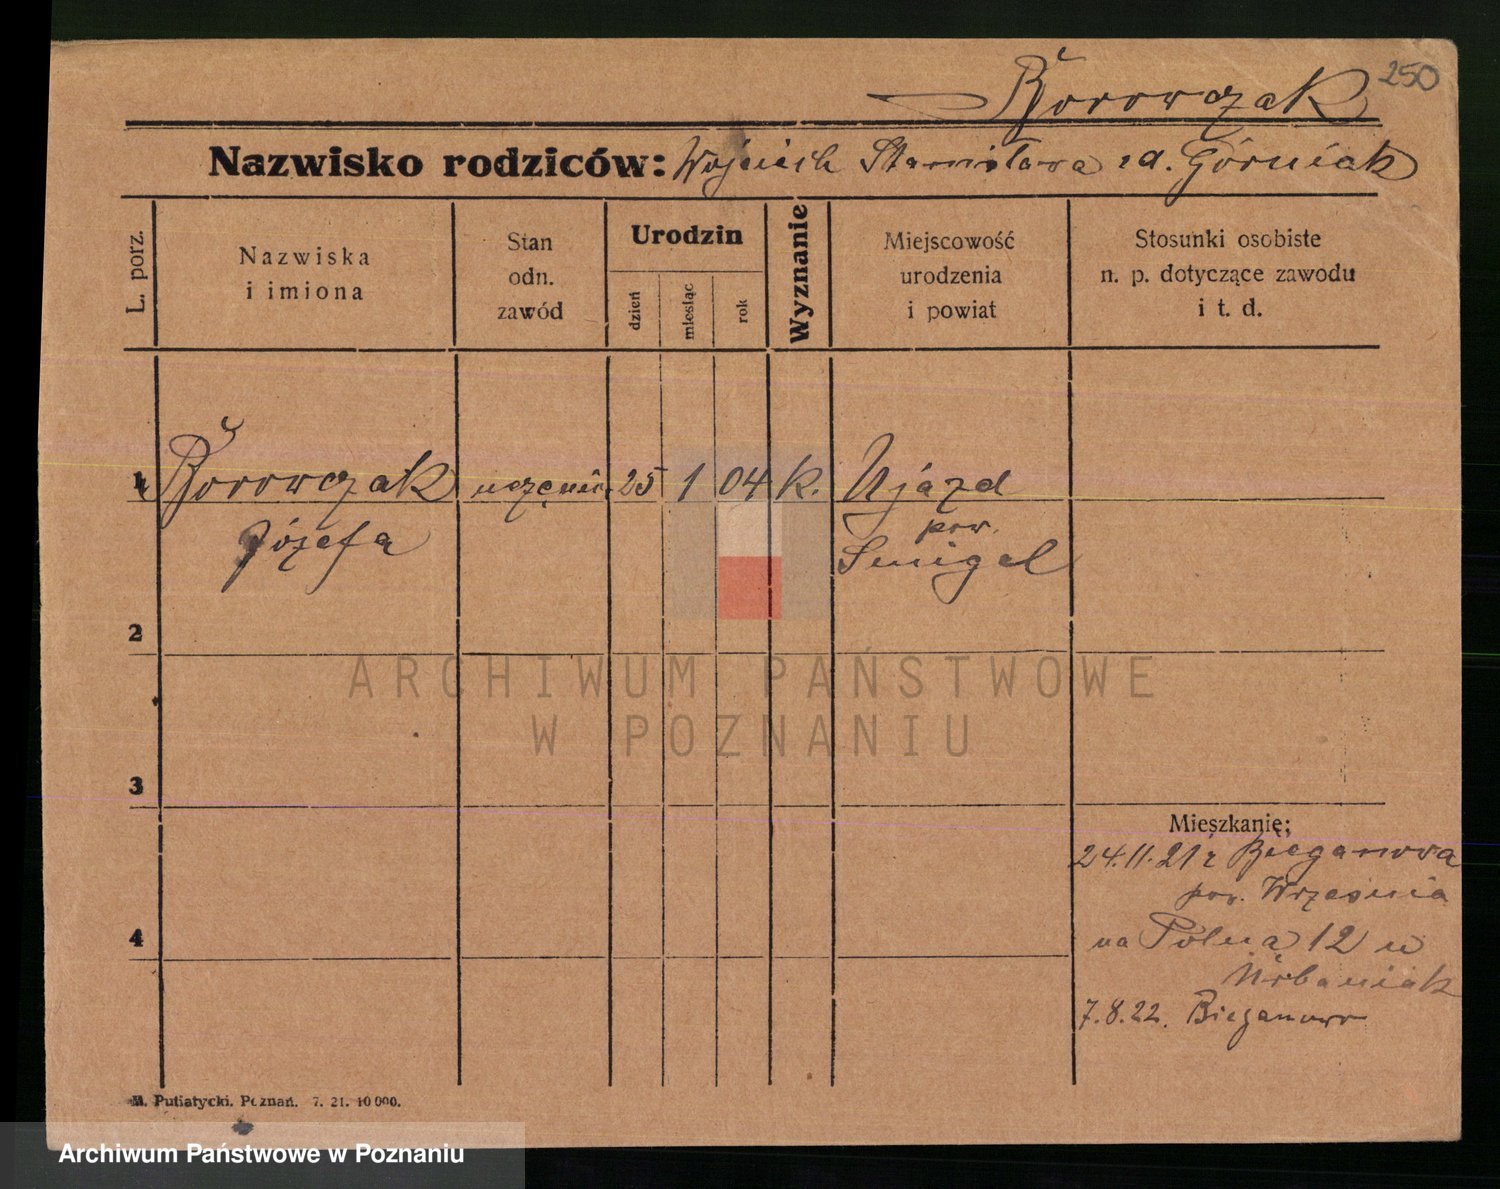 250
Borowczak
Nazwisko rodziców: Wojciech Stanisława zd. Górniak
L. porz.
Nazwiska
i imiona
Stan
odn.
zawód
Urodzin
dzień
miesiąc
rok
Wyznanie
Miejscowość
urodzenia
i powiat
Stosunki osobiste
n. p. dotyczące zawodu
i t. d.
1 Borowczak uczenic. 25 1 04 k. Ujazd
Józefa pow.
Smigel
2
3
4
Mieszkanie;
24.11.21 z Bieganowa
pow. Września
na Polna 12 u
Urbaniak
7.8.22. Bieganowo
M. Putiatycki. Poznań. 7. 21. 10 000.
ARCHIWUM PAŃSTWOWE
W POZNANIU
Archiwum Państwowe w Poznaniu